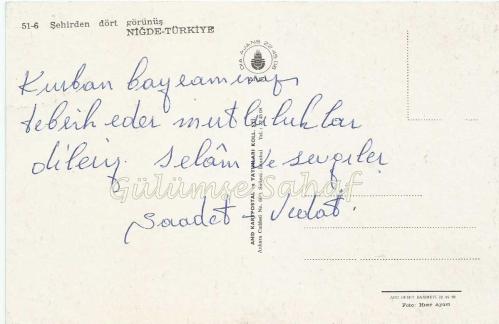 51-6 Şehirden dört görünüş
NİĞDE-TÜRKİYE
Kurban bayramınızı
tebrik eder mutluluklar
dileriz. Selâm ve sevgiler
Saadet - Vedat.
Gülümse Sahaf
AND KARTPOSTAL ve YAYINLARI KOLL. ŞTİ.
Ankara Caddesi No.
Foto: